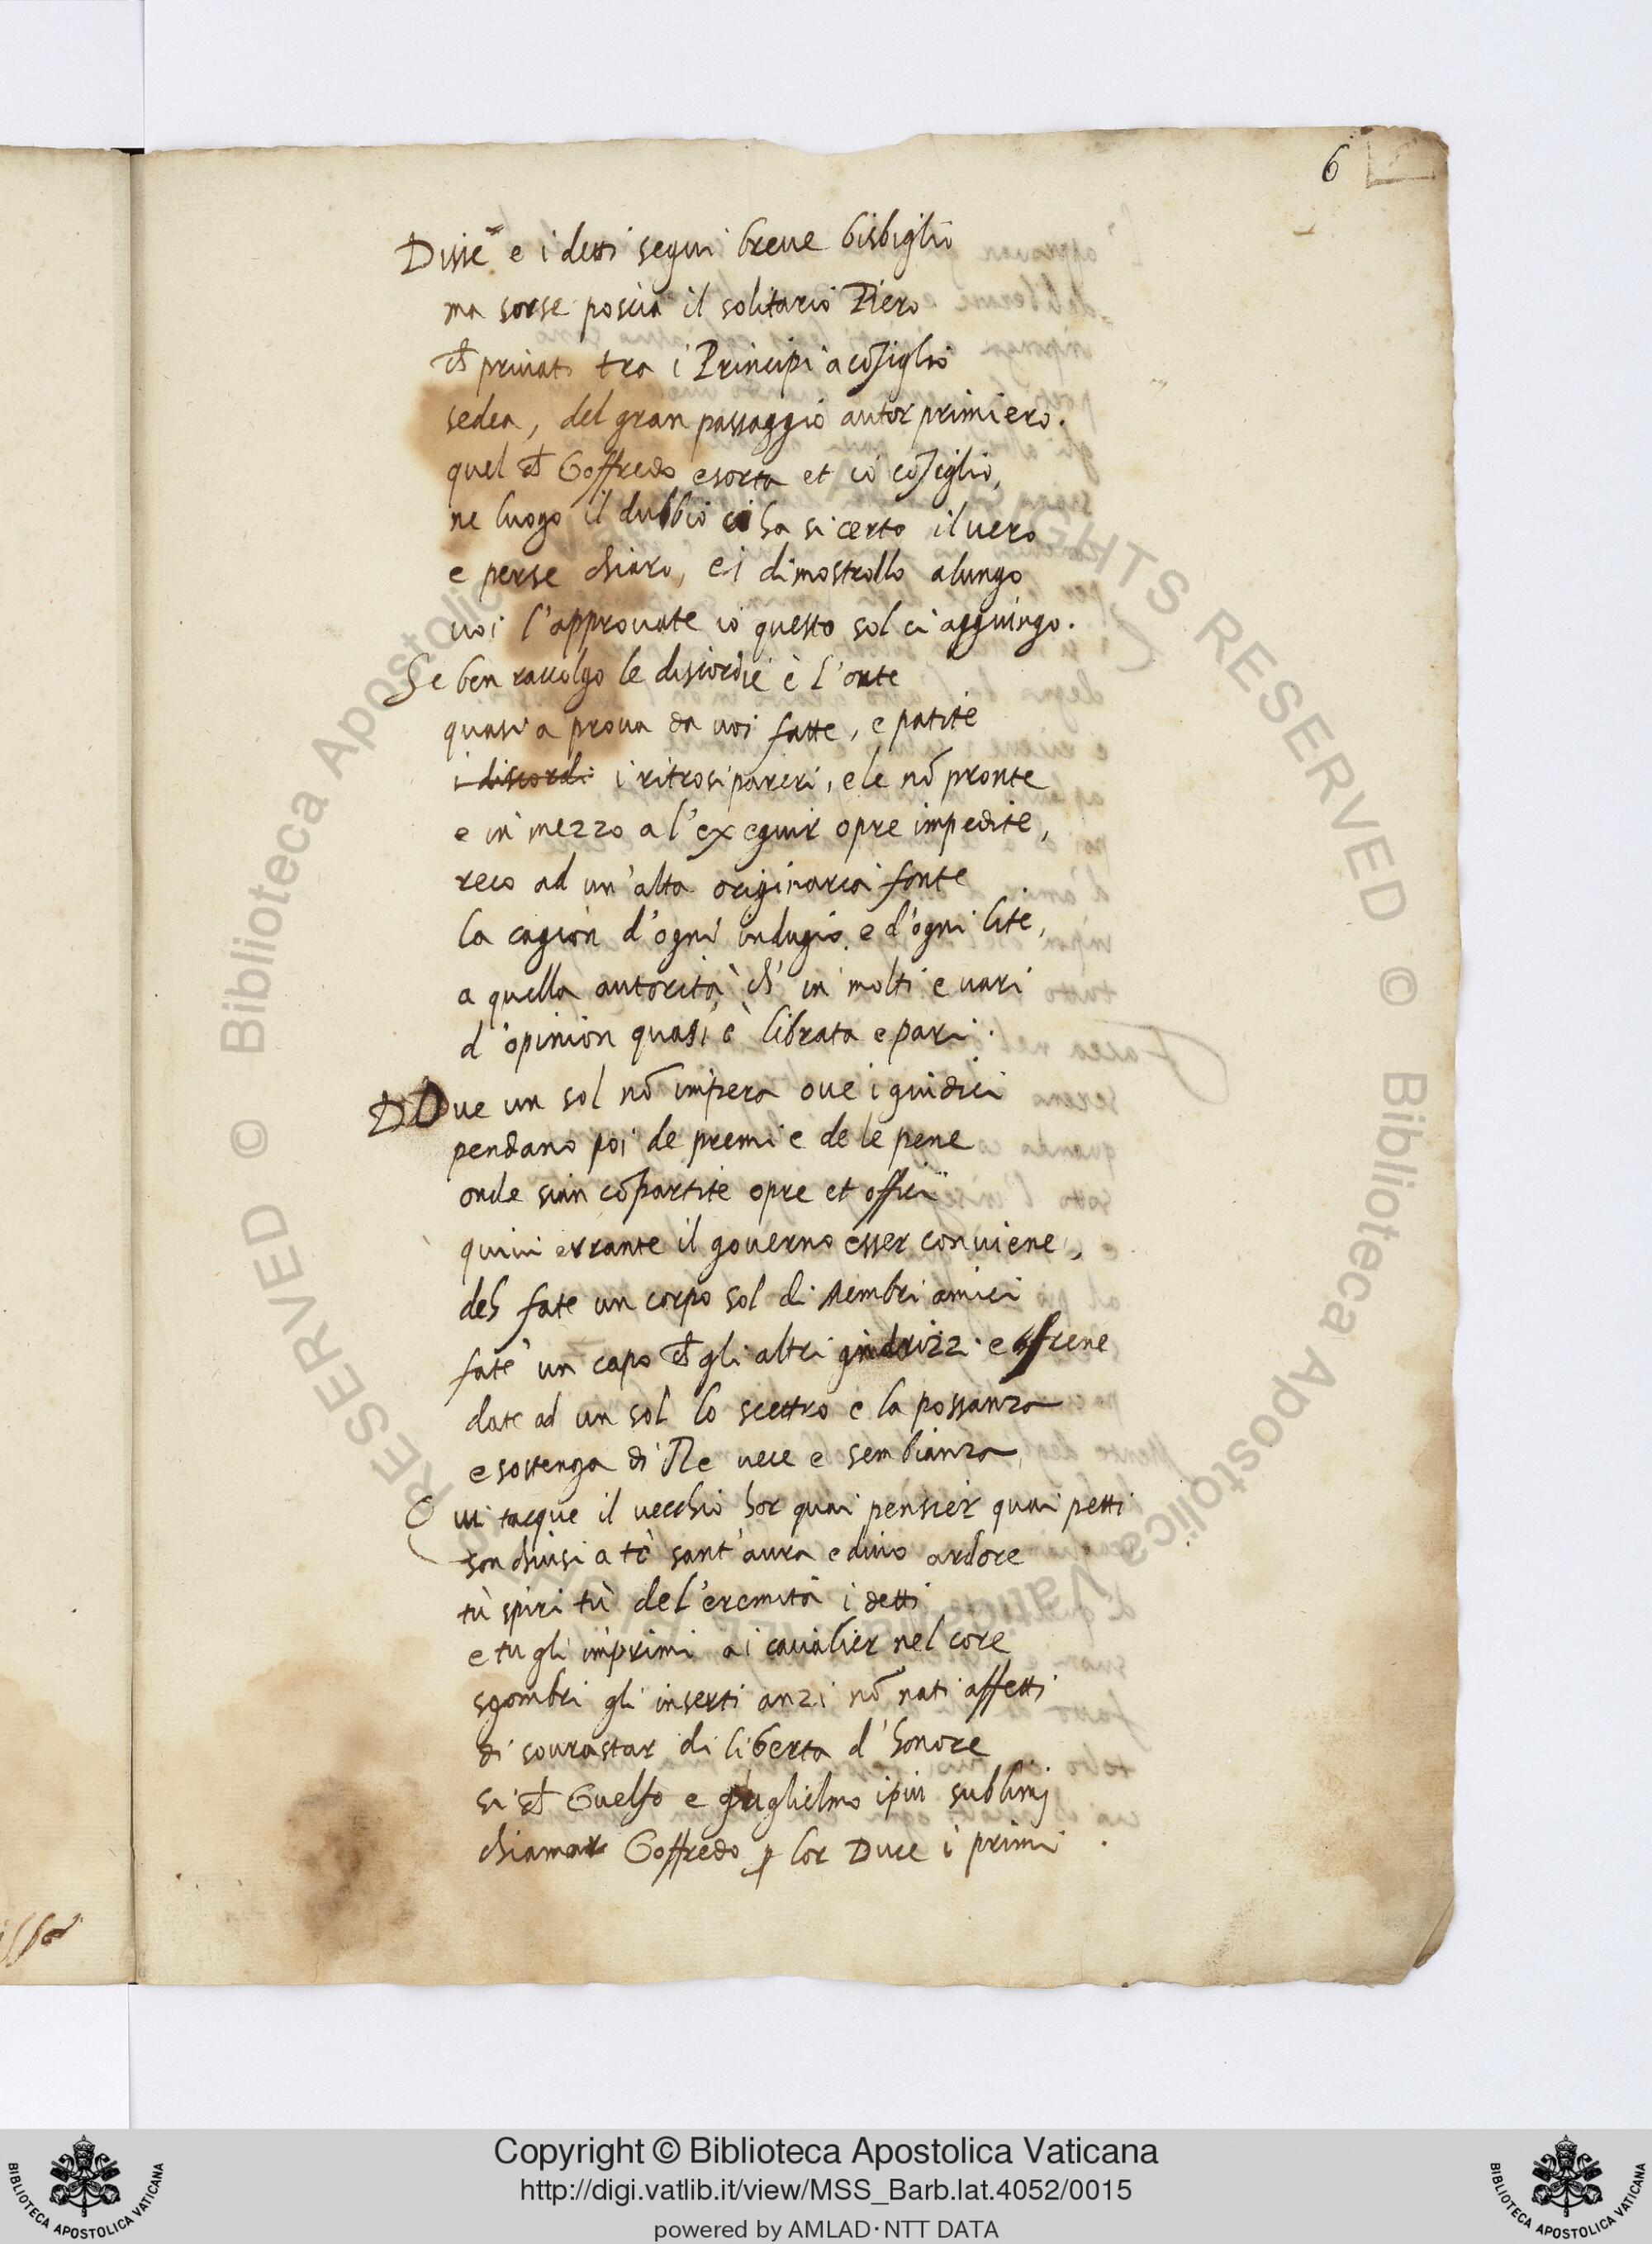 6
Disse e i detti seguì breue bisbiglio
ma sorse poscia il solitario Piero
ch̄ priuato tra i Principi a cōsiglio
sedea, del gran passaggio autor primiero.
quel ch̄ Goffredo esorta et io cōsiglio,
ne luogo il dubbio ci ha si certo il uero
e perse chiaro, ei dimostrollo alungo
uoi l'approuate io questo sol ci aggiungo.
Se ben raccolgo le discordie è l'onte
quasi a proua da uoi fatte, e patite
i discordi i ritrosi pareri, e le nō pronte
e in mezzo a l'exeguir opre impedite,
reco ad un'alta originaria fonte
la cagion d'ogni indugio e d'ogni lite,
a quella autorità ch' in molti e uari
d'opinion quasi è librata e pari.
D Oue un sol nō impera oue i giudici
pendano poi de premi e de le pene
onde sian cōpartite opre et offici
quiui errante il gouerno esser conuiene,
deh fate un corpo sol di membri amici
fate un capo ch̄ gli altri indrizzi e frene
date ad un sol lo scettro e la possanza
e sostenga di Re uece e sembianza
Qui tacque il uecchio hor quai pensier quai petti
son chiusi a tè sant'aura e diuo ardore
tù spiri tù del'eremita i detti
e tu gli imprimi ai caualier nel core
sgombri gli inserti anzi nō nati affetti
di sourastar di liberta d'honore
si ch̄ Guelfo e Guglielmo i piu sublimj
chiamar Goffredo ꝑ lor Duce i primi
Copyright © Biblioteca Apostolica Vaticana
http://digi.vatlib.it/view/MSS_Barb.lat.4052/0015
powered by AMLAD·NTT DATA
BIBLIOTECA APOSTOLICA VATICANA
BIBLIOTECA APOSTOLICA VATICANA